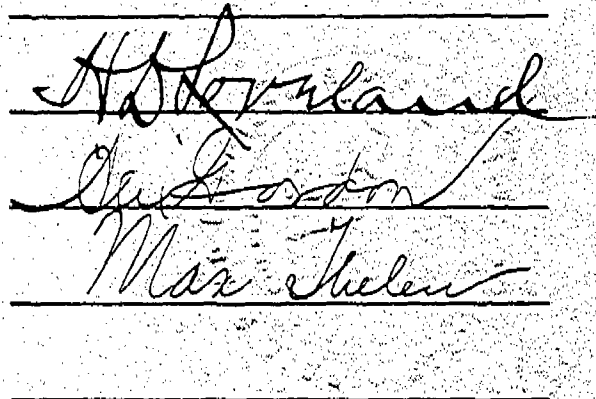 H D Loveland
Alex Gordon
Max Thelen